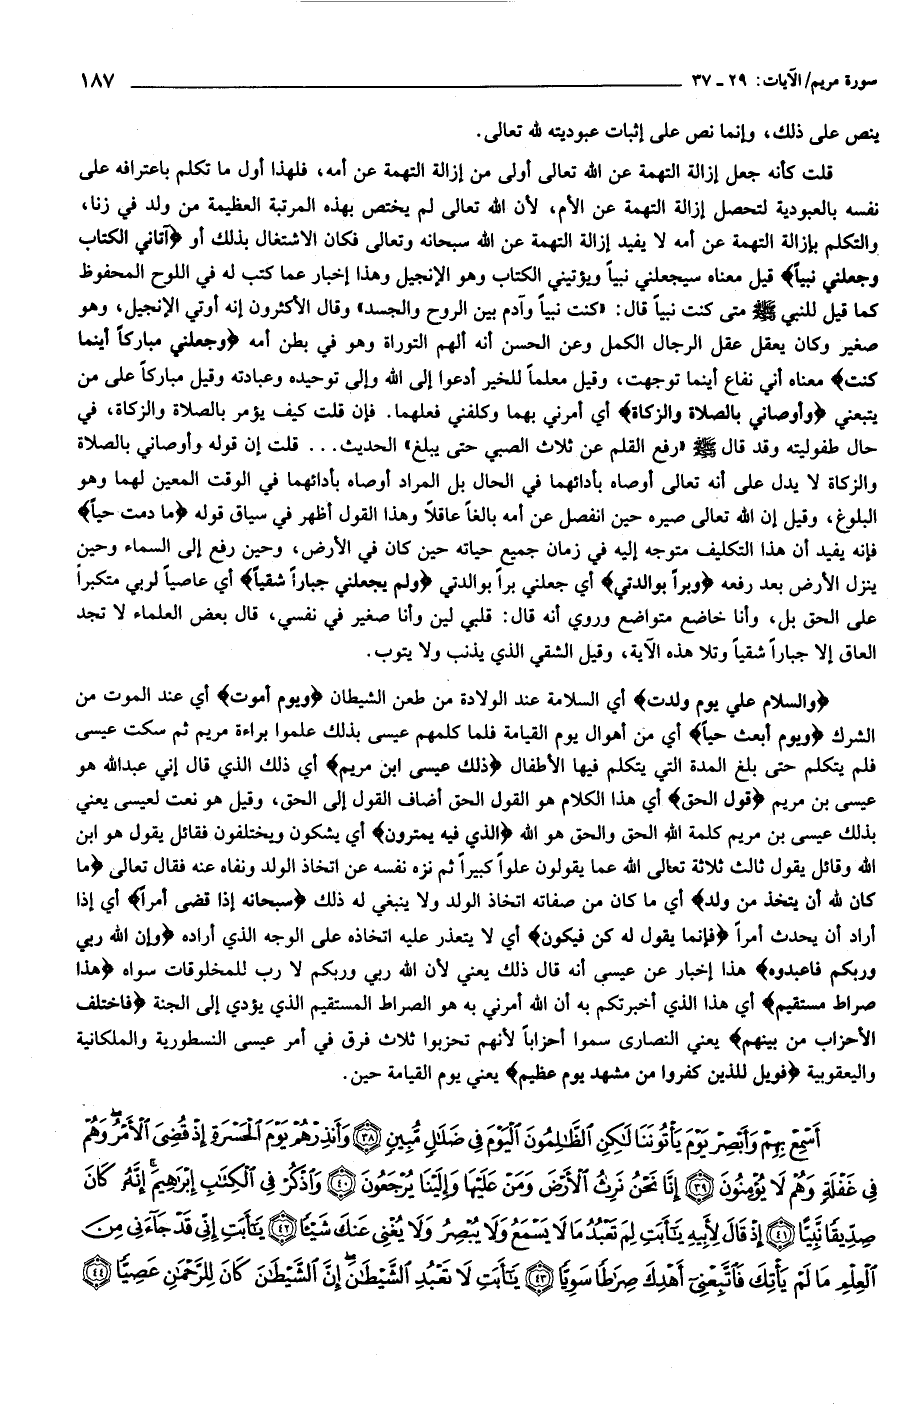 سورة مريم/ الآيات: ٢٩ ـ ٣٧ ١٨٧
ينص على ذلك، وإنما نص على إثبات عبوديته لله تعالى.
قلت كأنه جعل إزالة التهمة عن الله تعالى أولى من إزالة التهمة عن أمه، فلهذا أول ما تكلم باعترافه على
نفسه بالعبودية لتحصل إزالة التهمة عن الأم، لأن الله تعالى لم يختص بهذه المرتبة العظيمة من ولد في زنا،
والتكلم بإزالة التهمة عن أمه لا يفيد إزالة التهمة عن الله سبحانه وتعالى فكان الاشتغال بذلك أو ﴿آتاني الكتاب
وجعلني نبياً﴾ قيل معناه سيجعلني نبياً ويؤتيني الكتاب وهو الإنجيل وهذا إخبار عما كتب له في اللوح المحفوظ
كما قيل للنبي ﷺ متى كنت نبياً قال: «كنت نبياً وآدم بين الروح والجسد» وقال الأكثرون إنه أوتي الإنجيل، وهو
صغير وكان يعقل عقل الرجال الكمل وعن الحسن أنه ألهم التوراة وهو في بطن أمه ﴿وجعلني مباركاً أينما
كنت﴾ معناه أني نفاع أينما توجهت، وقيل معلماً للخير أدعوا إلى الله وإلى توحيده وعبادته وقيل مباركاً على من
يتبعني ﴿وأوصاني بالصلاة والزكاة﴾ أي أمرني بهما وكلفني فعلهما. فإن قلت كيف يؤمر بالصلاة والزكاة، في
حال طفوليته وقد قال ﷺ «رفع القلم عن ثلاث الصبي حتى يبلغ» الحديث... قلت إن قوله وأوصاني بالصلاة
والزكاة لا يدل على أنه تعالى أوصاه بأدائهما في الحال بل المراد أوصاه بأدائهما في الوقت المعين لهما وهو
البلوغ، وقيل إن الله تعالى صيره حين انفصل عن أمه بالغاً عاقلاً وهذا القول أظهر في سياق قوله ﴿ما دمت حياً﴾
فإنه يفيد أن هذا التكليف متوجه إليه في زمان جميع حياته حين كان في الأرض، وحين رفع إلى السماء وحين
ينزل الأرض بعد رفعه ﴿وبراً بوالدتي﴾ أي جعلني براً بوالدتي ﴿ولم يجعلني جباراً شقياً﴾ أي عاصياً لربي متكبراً
على الحق بل، وأنا خاضع متواضع وروي أنه قال: قلبي لين وأنا صغير في نفسي، قال بعض العلماء لا تجد
العاق إلا جباراً شقياً وتلا هذه الآية، وقيل الشقي الذي يذنب ولا يتوب.
﴿والسلام علي يوم ولدت﴾ أي السلامة عند الولادة من طعن الشيطان ﴿ويوم أموت﴾ أي عند الموت من
الشرك ﴿ويوم أبعث حياً﴾ أي من أهوال يوم القيامة فلما كلمهم عيسى بذلك علموا براءة مريم ثم سكت عيسى
فلم يتكلم حتى بلغ المدة التي يتكلم فيها الأطفال ﴿ذلك عيسى ابن مريم﴾ أي ذلك الذي قال إني عبدالله هو
عيسى بن مريم ﴿قول الحق﴾ أي هذا الكلام هو القول الحق أضاف القول إلى الحق، وقيل هو نعت لعيسى يعني
بذلك عيسى بن مريم كلمة الله الحق والحق هو الله ﴿الذي فيه يمترون﴾ أي يشكون ويختلفون فقائل يقول هو ابن
الله وقائل يقول ثالث ثلاثة تعالى الله عما يقولون علواً كبيراً ثم نزه نفسه عن اتخاذ الولد ونفاه عنه فقال تعالى ﴿ما
كان لله أن يتخذ من ولد﴾ أي ما كان من صفاته اتخاذ الولد ولا ينبغي له ذلك ﴿سبحانه إذا قضى أمراً﴾ أي إذا
أراد أن يحدث أمراً ﴿فإنما يقول له كن فيكون﴾ أي لا يتعذر عليه اتخاذه على الوجه الذي أراده ﴿وإن الله ربي
وربكم فاعبدوه﴾ هذا إخبار عن عيسى أنه قال ذلك يعني لأن الله ربي وربكم لا رب للمخلوقات سواه ﴿هذا
صراط مستقيم﴾ أي هذا الذي أخبرتكم به أن الله أمرني به هو الصراط المستقيم الذي يؤدي إلى الجنة ﴿فاختلف
الأحزاب من بينهم﴾ يعني النصارى سموا أحزاباً لأنهم تحزبوا ثلاث فرق في أمر عيسى النسطورية والملكانية
واليعقوبية ﴿فويل للذين كفروا من مشهد يوم عظيم﴾ يعني يوم القيامة حين.
أَسْمِعْ بِهِمْ وَأَبْصِرْ يَوْمَ يَأْتُونَنَا لَٰكِنِ ٱلظَّٰلِمُونَ ٱلْيَوْمَ فِى ضَلَٰلٍ مُّبِينٍ ﴿٣٨﴾ وَأَنذِرْهُمْ يَوْمَ ٱلْحَسْرَةِ إِذْ قُضِىَ ٱلْأَمْرُ وَهُمْ
فِى غَفْلَةٍ وَهُمْ لَا يُؤْمِنُونَ ﴿٣٩﴾ إِنَّا نَحْنُ نَرِثُ ٱلْأَرْضَ وَمَنْ عَلَيْهَا وَإِلَيْنَا يُرْجَعُونَ ﴿٤٠﴾ وَٱذْكُرْ فِى ٱلْكِتَٰبِ إِبْرَٰهِيمَ إِنَّهُۥ كَانَ
صِدِّيقًا نَّبِيًّا ﴿٤١﴾ إِذْ قَالَ لِأَبِيهِ يَٰٓأَبَتِ لِمَ تَعْبُدُ مَا لَا يَسْمَعُ وَلَا يُبْصِرُ وَلَا يُغْنِى عَنكَ شَيْـًٔا ﴿٤٢﴾ يَٰٓأَبَتِ إِنِّى قَدْ جَآءَنِى مِنَ
ٱلْعِلْمِ مَا لَمْ يَأْتِكَ فَٱتَّبِعْنِىٓ أَهْدِكَ صِرَٰطًا سَوِيًّا ﴿٤٣﴾ يَٰٓأَبَتِ لَا تَعْبُدِ ٱلشَّيْطَٰنَ إِنَّ ٱلشَّيْطَٰنَ كَانَ لِلرَّحْمَٰنِ عَصِيًّا ﴿٤٤﴾